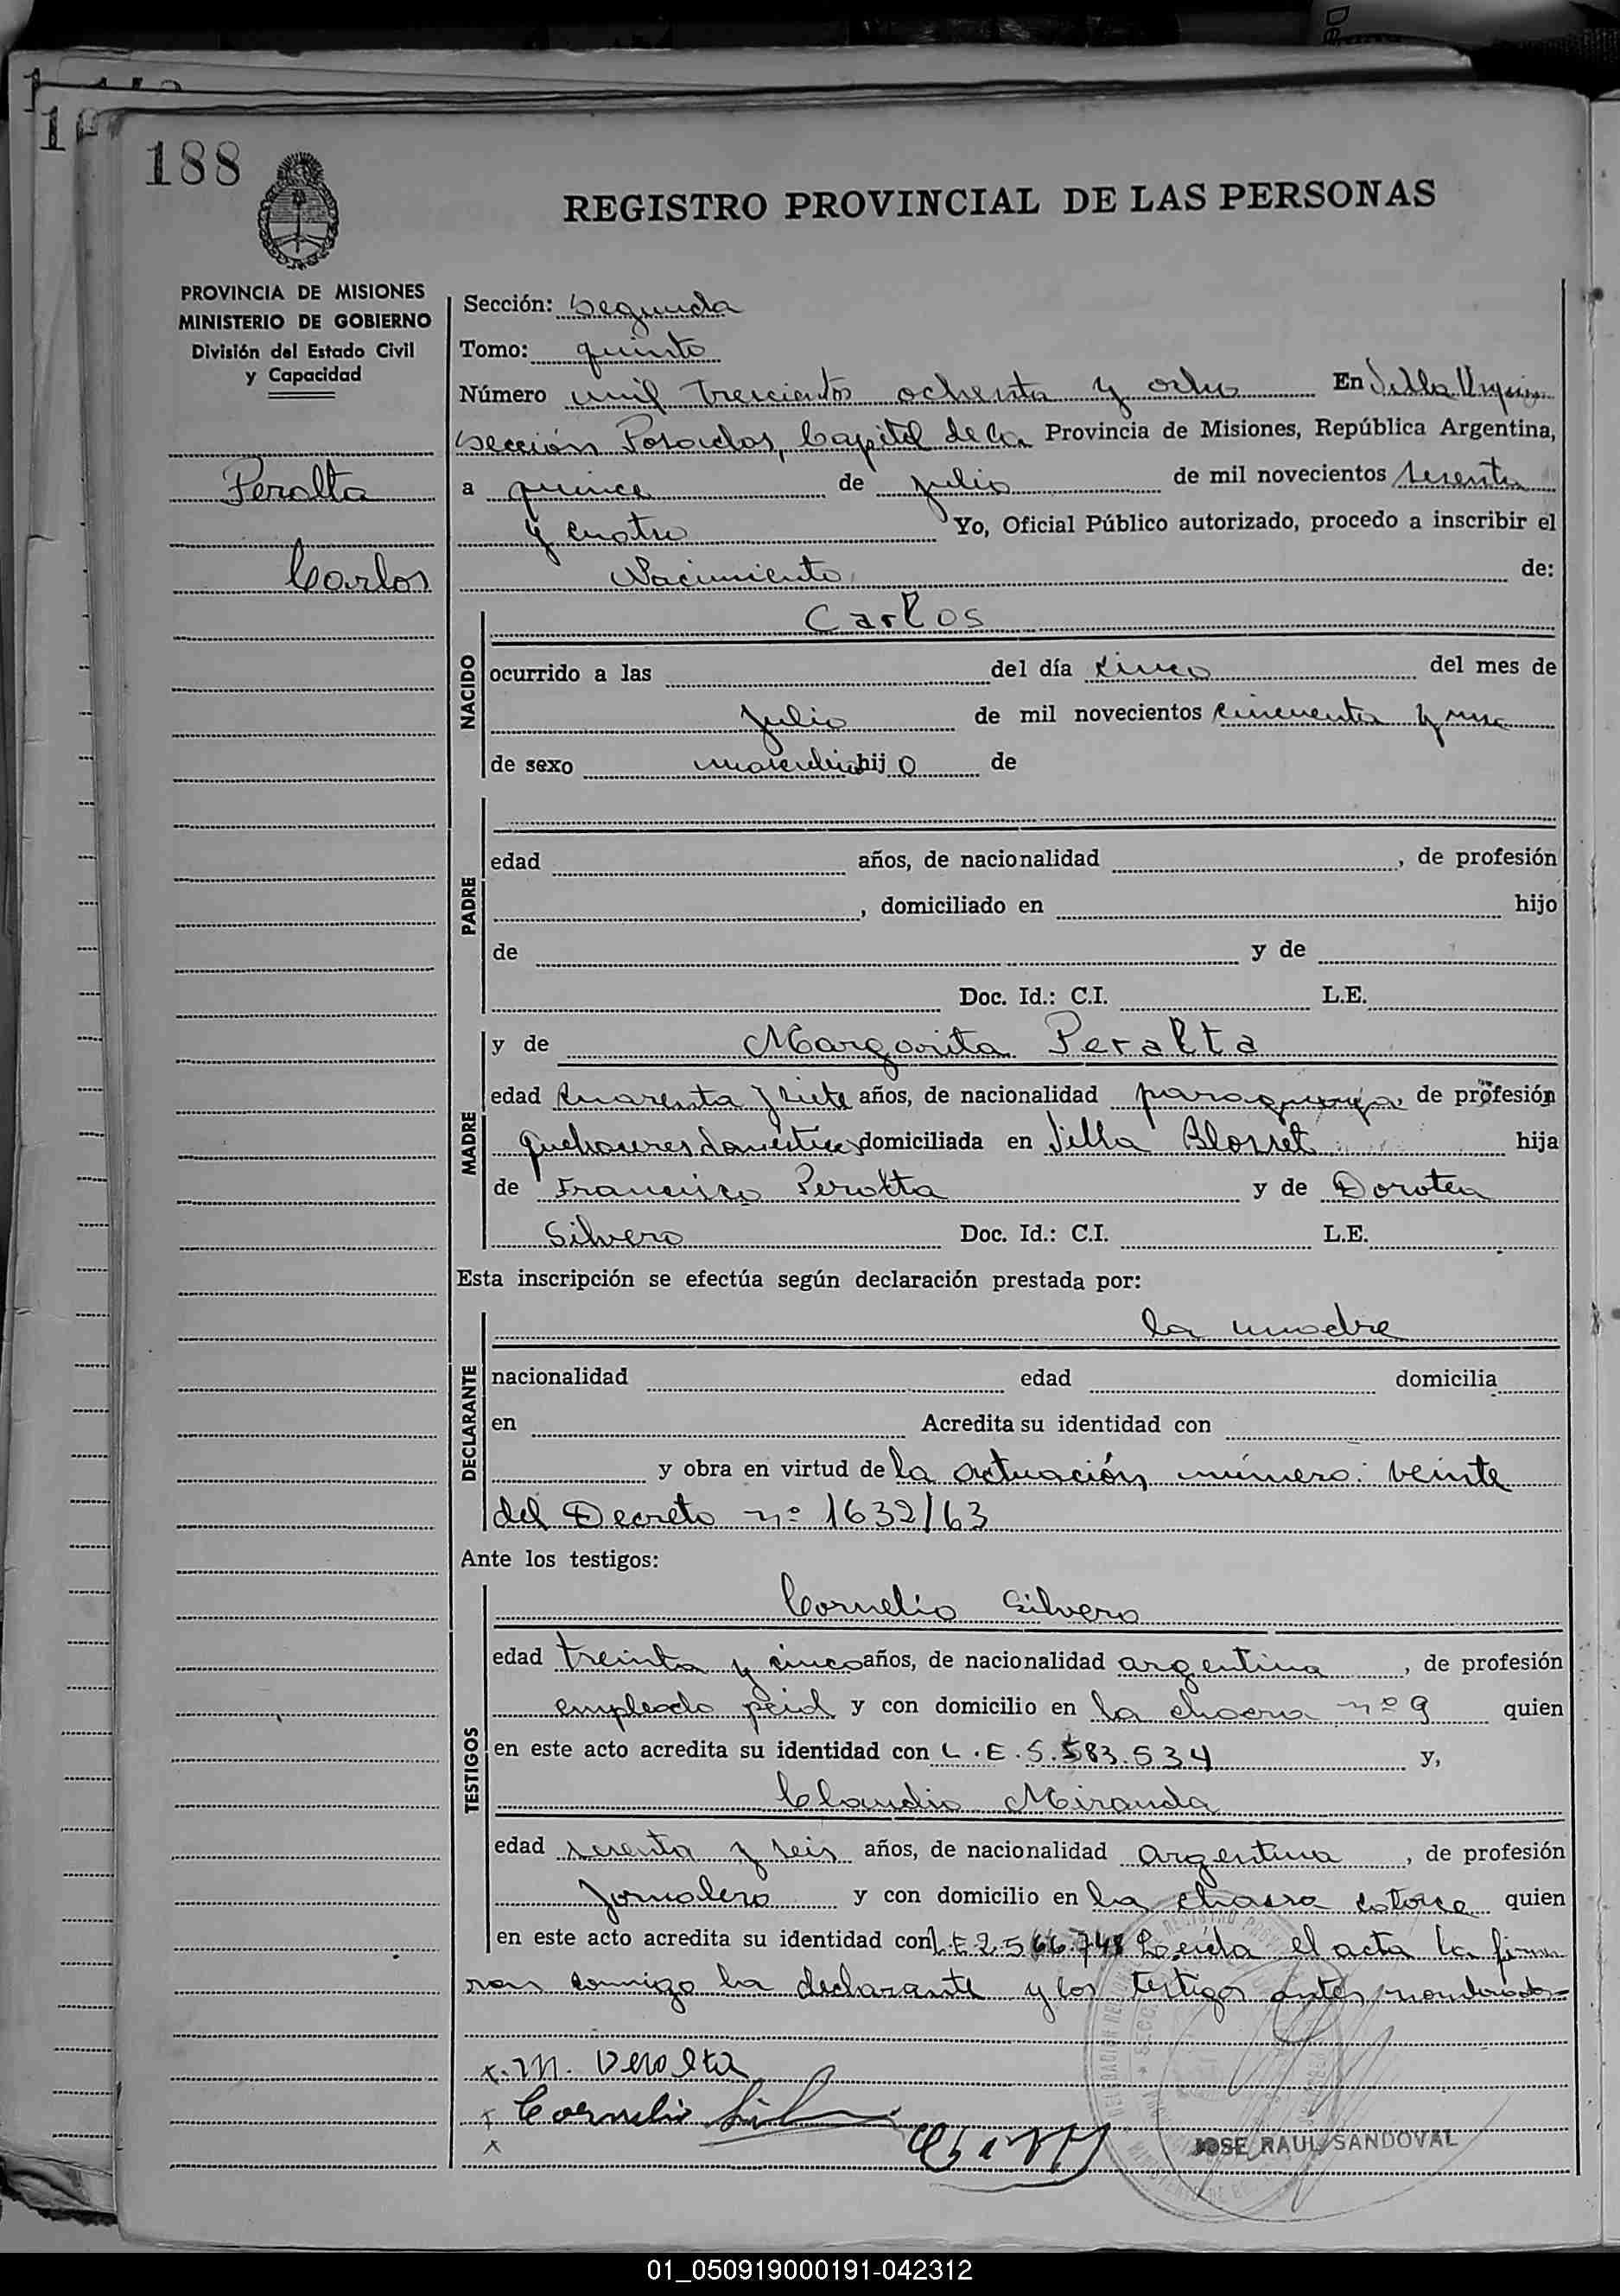 188
REGISTRO PROVINCIAL DE LAS PERSONAS
PROVINCIA DE MISIONES
MINISTERIO DE GOBIERNO
División del Estado Civil
y Capacidad
Peralta
Carlos
Sección: Segunda
Tomo: quinto
Número mil trescientos ochenta y ocho En Villa Urquiza
sección Posadas, Capital de la Provincia de Misiones, República Argentina,
a quince de julio de mil novecientos sesenta
y cuatro Yo, Oficial Público autorizado, procedo a inscribir el
Nacimiento de:
NACIDO
Carlos
ocurrido a las del día cinco del mes de
julio de mil novecientos cincuenta y uno
de sexo masculino hijo de
PADRE
edad años, de nacionalidad , de profesión
, domiciliado en hijo
de y de
Doc. Id.: C.I. L.E.
MADRE
y de Margarita Peralta
edad cuarenta y siete años, de nacionalidad paraguaya de profesión
quehaceres domésticos domiciliada en Villa Blosset hija
de Francisco Peralta y de Dorotea
Silvero Doc. Id.: C.I. L.E.
Esta inscripción se efectúa según declaración prestada por:
DECLARANTE
la madre
nacionalidad edad domicilia
en Acredita su identidad con
y obra en virtud de la actuación número: veinte
del Decreto nº 1632/63
Ante los testigos:
TESTIGOS
Cornelio Silvero
edad treinta y cinco años, de nacionalidad argentina , de profesión
empleado y con domicilio en la chacra nº 9 quien
en este acto acredita su identidad con L.E.5.583.534 y,
Claudio Miranda
edad sesenta y seis años, de nacionalidad argentina , de profesión
Jornalero y con domicilio en la chacra catorce quien
en este acto acredita su identidad con L.E 2.566.748 Leída el acta la firma
ron conmigo la declarante y los testigos antes nombrados=
x. M. Peralta
x Cornelio Sil
x
JOSE RAUL SANDOVAL
01_050919000191-042312